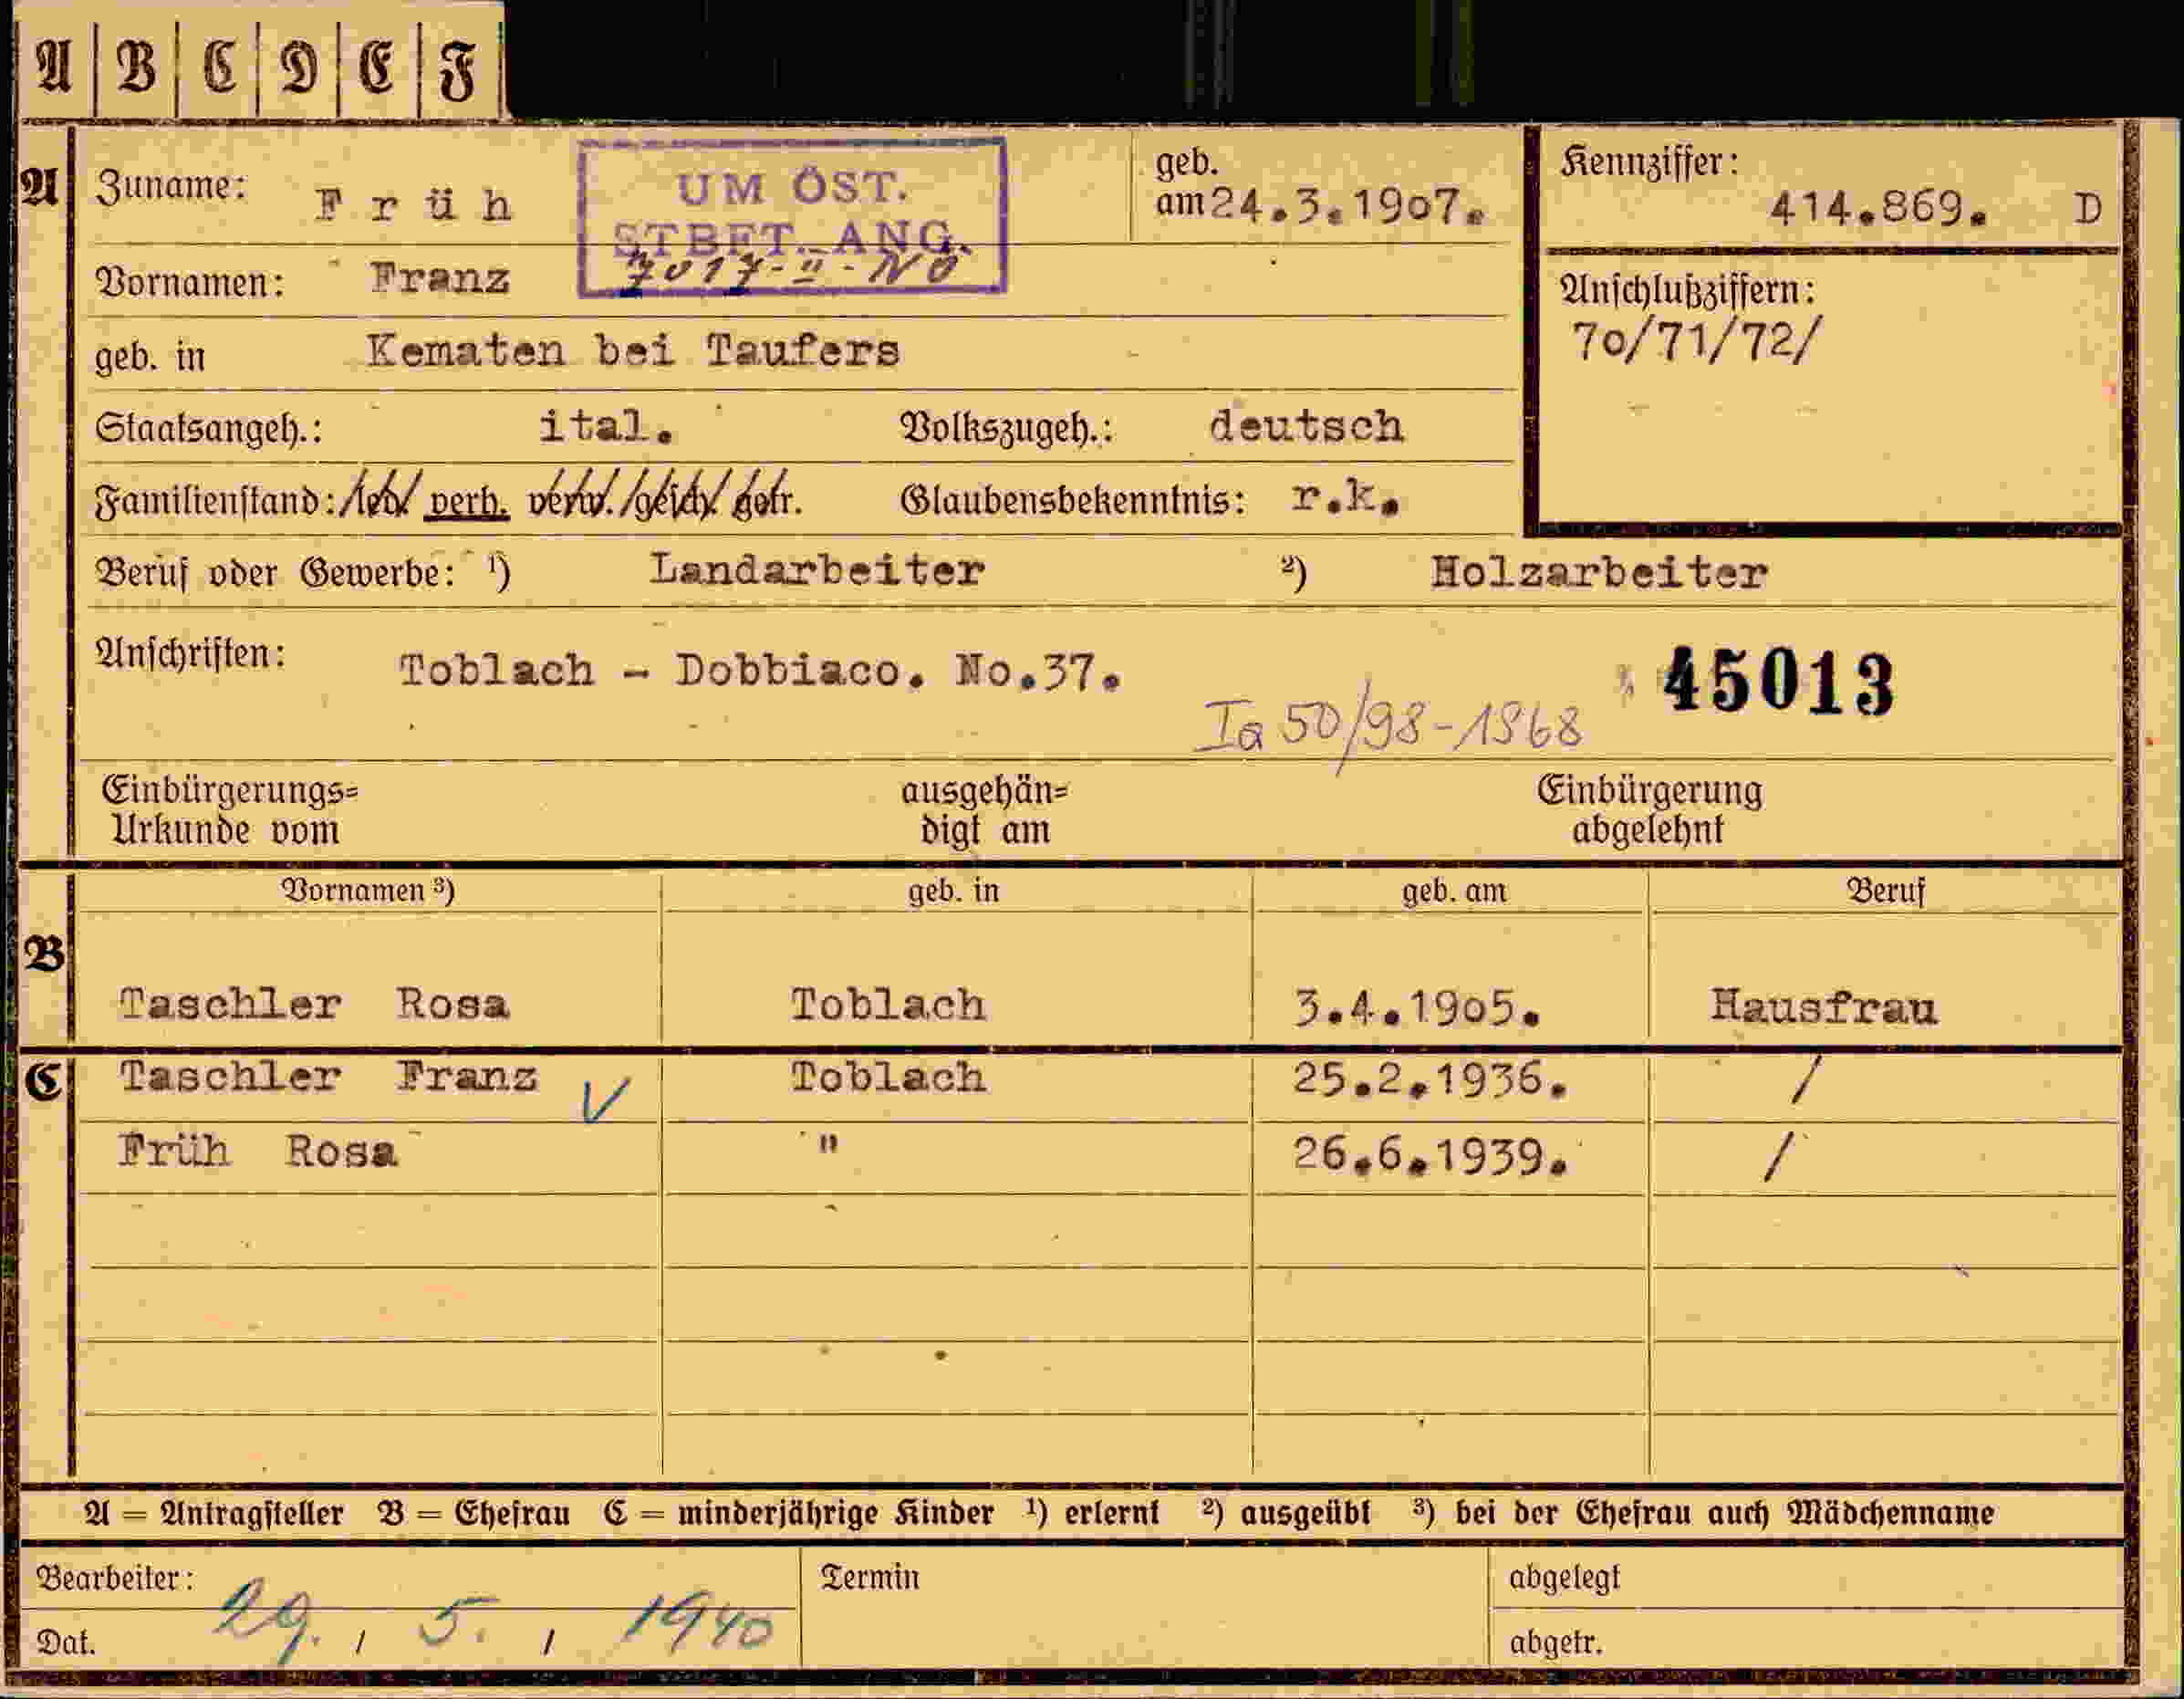 A B C D E F
A Zuname: Früh UM ÖST. STBET.-ANG. 7017-II-NO geb. am 24.3.19o7. Kennziffer: 414.869. D
Vornamen: Franz
Anschlußziffern:
70/71/72/
geb. in Kematen bei Taufers
Staatsangeh.: ital. Volkszugeh.: deutsch
Familienstand: led. verh. verw. gesch. getr. Glaubensbekenntnis: r.k.
Beruf oder Gewerbe: 1) Landarbeiter 2) Holzarbeiter
Anschriften: Toblach - Dobbiaco. No.37. 45013
Ia 50/98-1968
Einbürgerungs= ausgehän= Einbürgerung
Urkunde vom digt am abgelehnt
Vornamen 3) geb. in geb. am Beruf
B
Taschler Rosa Toblach 3.4.19o5. Hausfrau
C Taschler Franz V Toblach 25.2.1936. /
Früh Rosa " 26.6.1939. /
A = Antragsteller B = Ehefrau C = minderjährige Kinder 1) erlernt 2) ausgeübt 3) bei der Ehefrau auch Mädchenname
Bearbeiter: Termin abgelegt
Dat. 29. / 5. / 1940 abgetr.